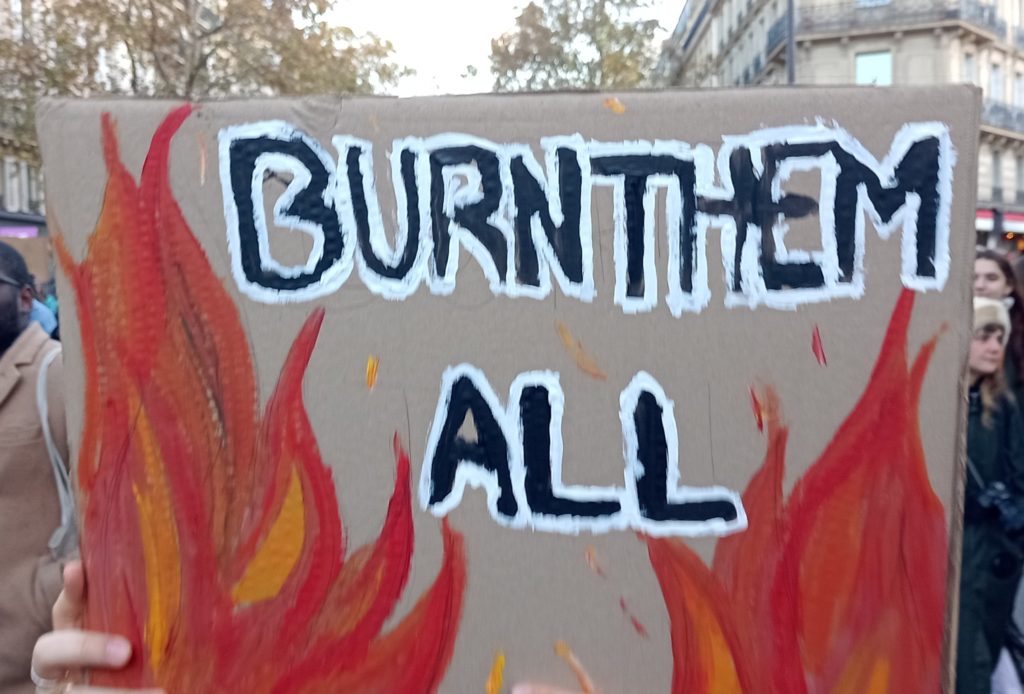 BURN THEM
ALL